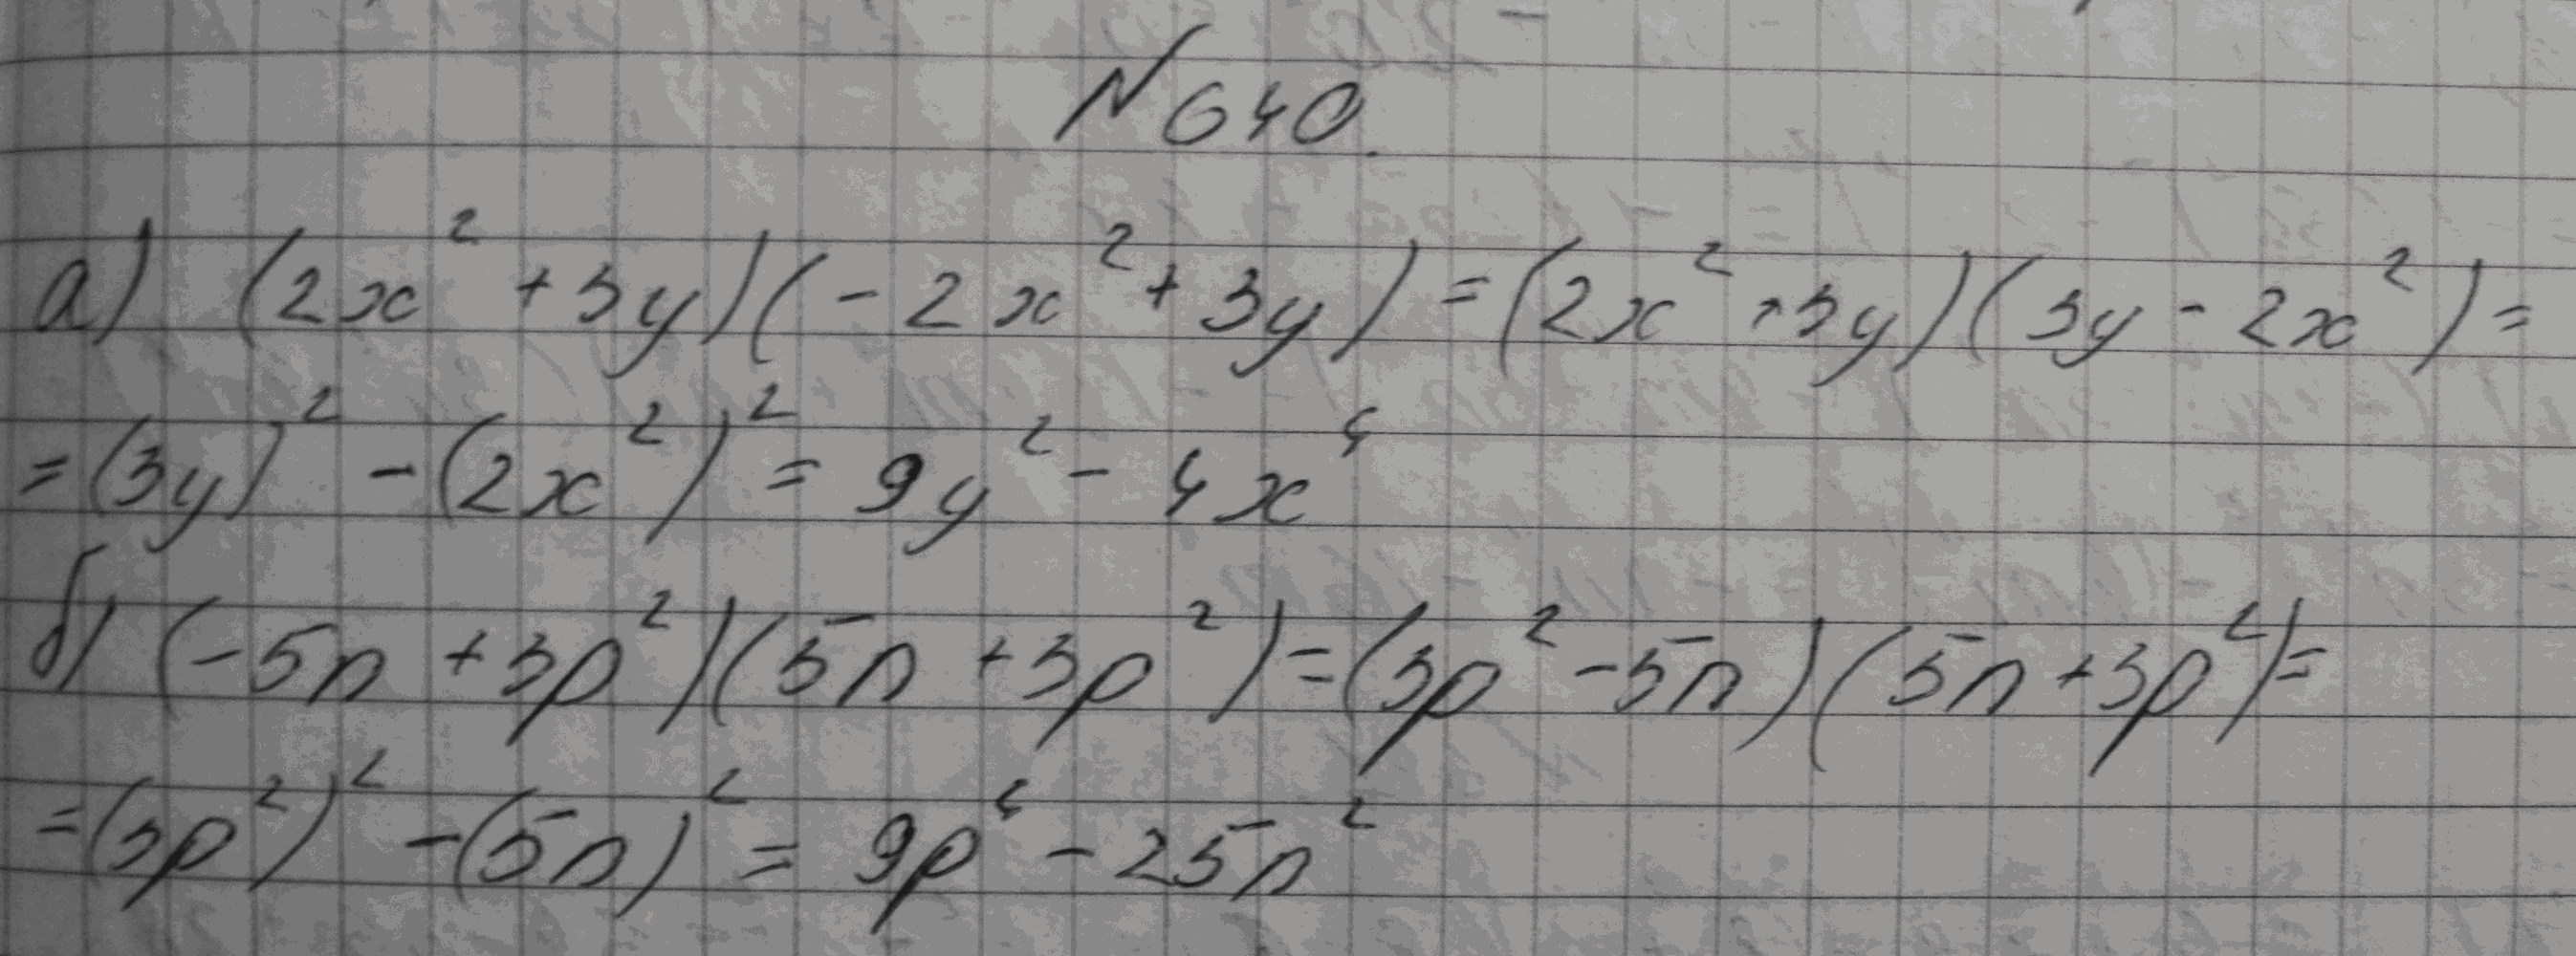 N 640.
а) (2x² + 3y)(-2x² + 3y) = (2x² + 3y)(3y - 2x²) =
= (3y)² - (2x²)² = 9y² - 4x⁴
б) (-5n + 3p²)(5n + 3p²) = (3p² - 5n)(5n + 3p²) =
= (3p²)² - (5n)² = 9p⁴ - 25n²